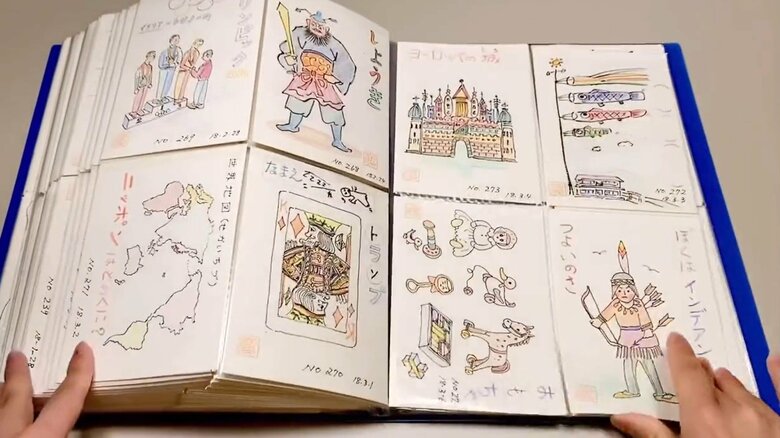 NO. 269 18.2.28
しょうき
NO. 268
ヨーロッパの城
NO. 273 18.3.4
NO. 272
18.3.3
世界地図(せかいちず)
ニッポンはどのくに?
NO. 271 18.3.2
NO. 239 18.1.28
なまえ
トランプ
K
NO. 270 18.3.1
おもちゃ
ぼくはインデアン
つよいのさ